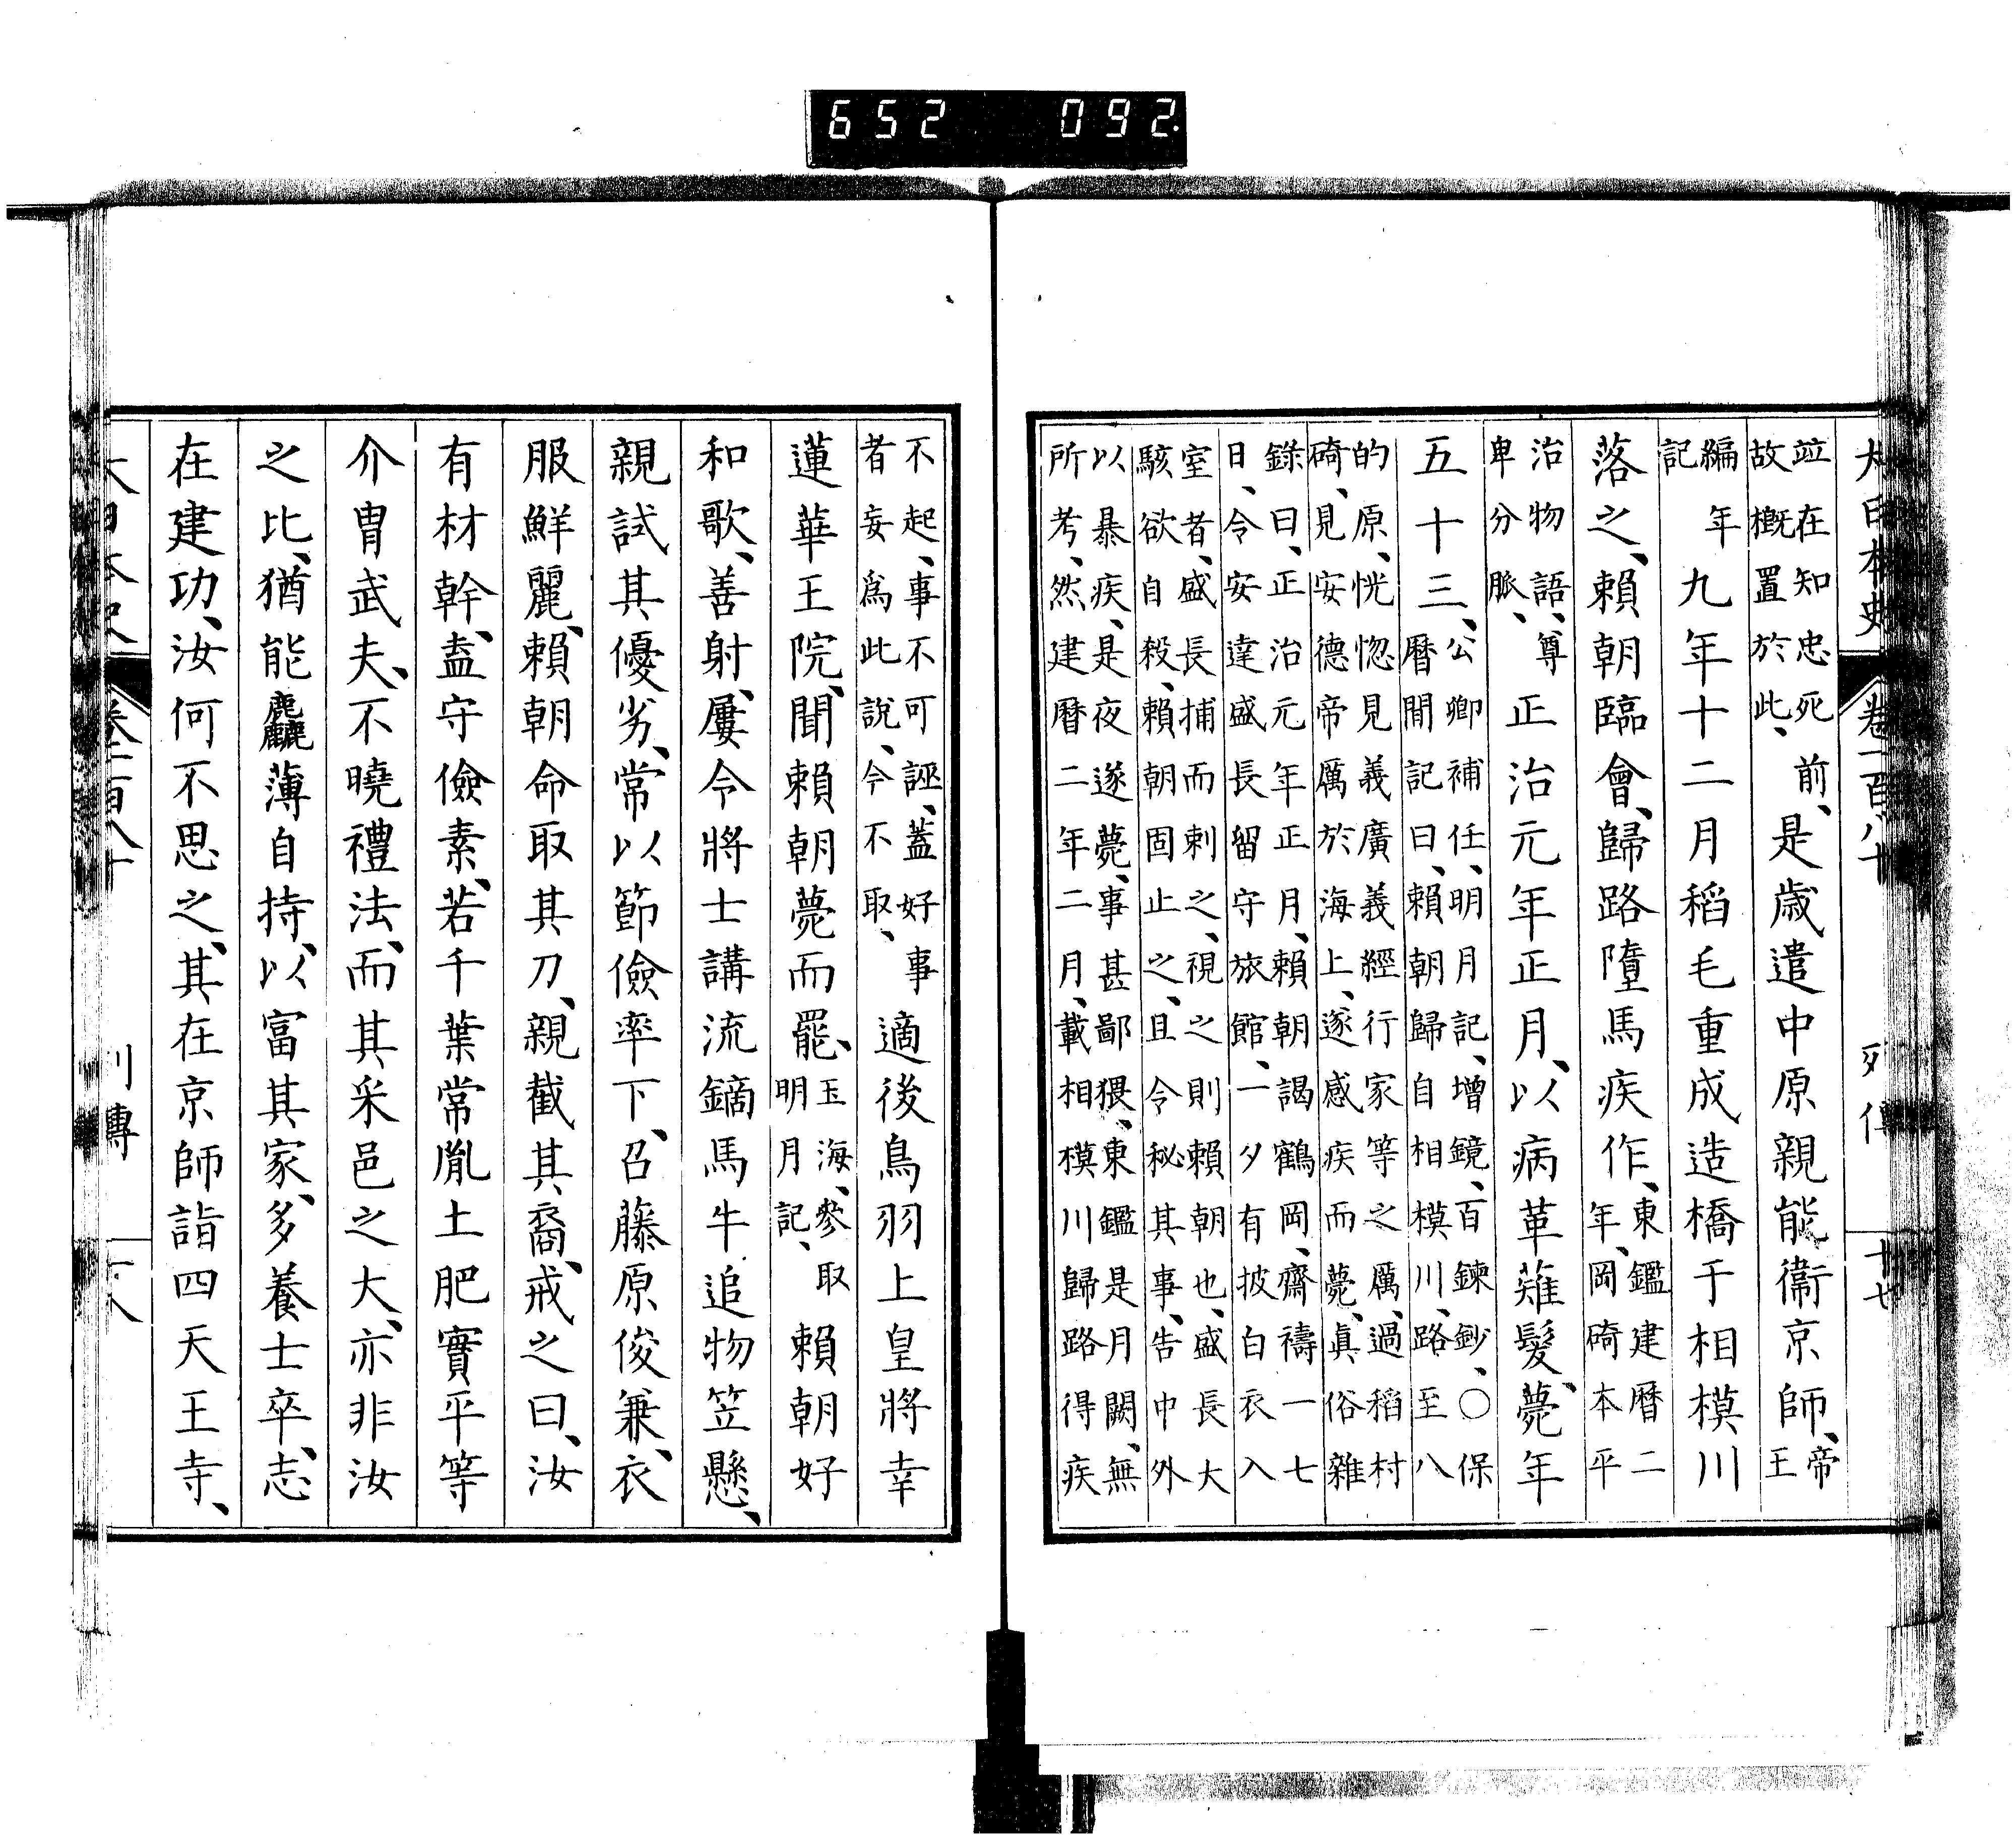 大日本史 卷一百八十 列傳 十七
竝在知忠死前、故概置於此、是歲遣中原親能衞京師、帝王
編年記九年十二月稻毛重成造橋于相模川
落之、賴朝臨會、歸路墮馬疾作、東鑑建曆二年、岡碕本平
治物語、尊卑分脈、正治元年正月、以病革薙髮、薨年
五十三、公卿補任、明月記、增鏡、百鍊鈔、〇保曆閒記曰、賴朝歸自相模川、路至八
的原、恍惚見義廣義經行家等之厲、過稻村碕、見安德帝厲於海上、遂感疾而薨、眞俗雜
錄曰、正治元年正月、賴朝謁鶴岡、齋禱一七日、令安達盛長留守旅館、一夕有披白衣入
室者、盛長捕而刺之、視之則賴朝也、盛長大駭欲自殺、賴朝固止之、且令秘其事、告中外
以暴疾、是夜遂薨、事甚鄙猥、東鑑是月闕、無所考、然建曆二年二月、載相模川歸路得疾
不起、事不可誣、蓋好事者妄爲此說、今不取、適後鳥羽上皇將幸
蓮華王院、聞賴朝薨而罷、玉海、參取明月記、賴朝好
和歌、善射、屢令將士講流鏑馬牛追物笠懸、
親試其優劣、常以節儉率下、召藤原俊兼、衣
服鮮麗、賴朝命取其刀、親截其裔、戒之曰、汝
有材幹、盍守儉素、若千葉常胤土肥實平等
介胄武夫、不曉禮法、而其采邑之大、亦非汝
之比、猶能麤薄自持、以富其家、多養士卒、志
在建功、汝何不思之、其在京師詣四天王寺、
大日本史 卷一百八十 列傳 十八
652 092.